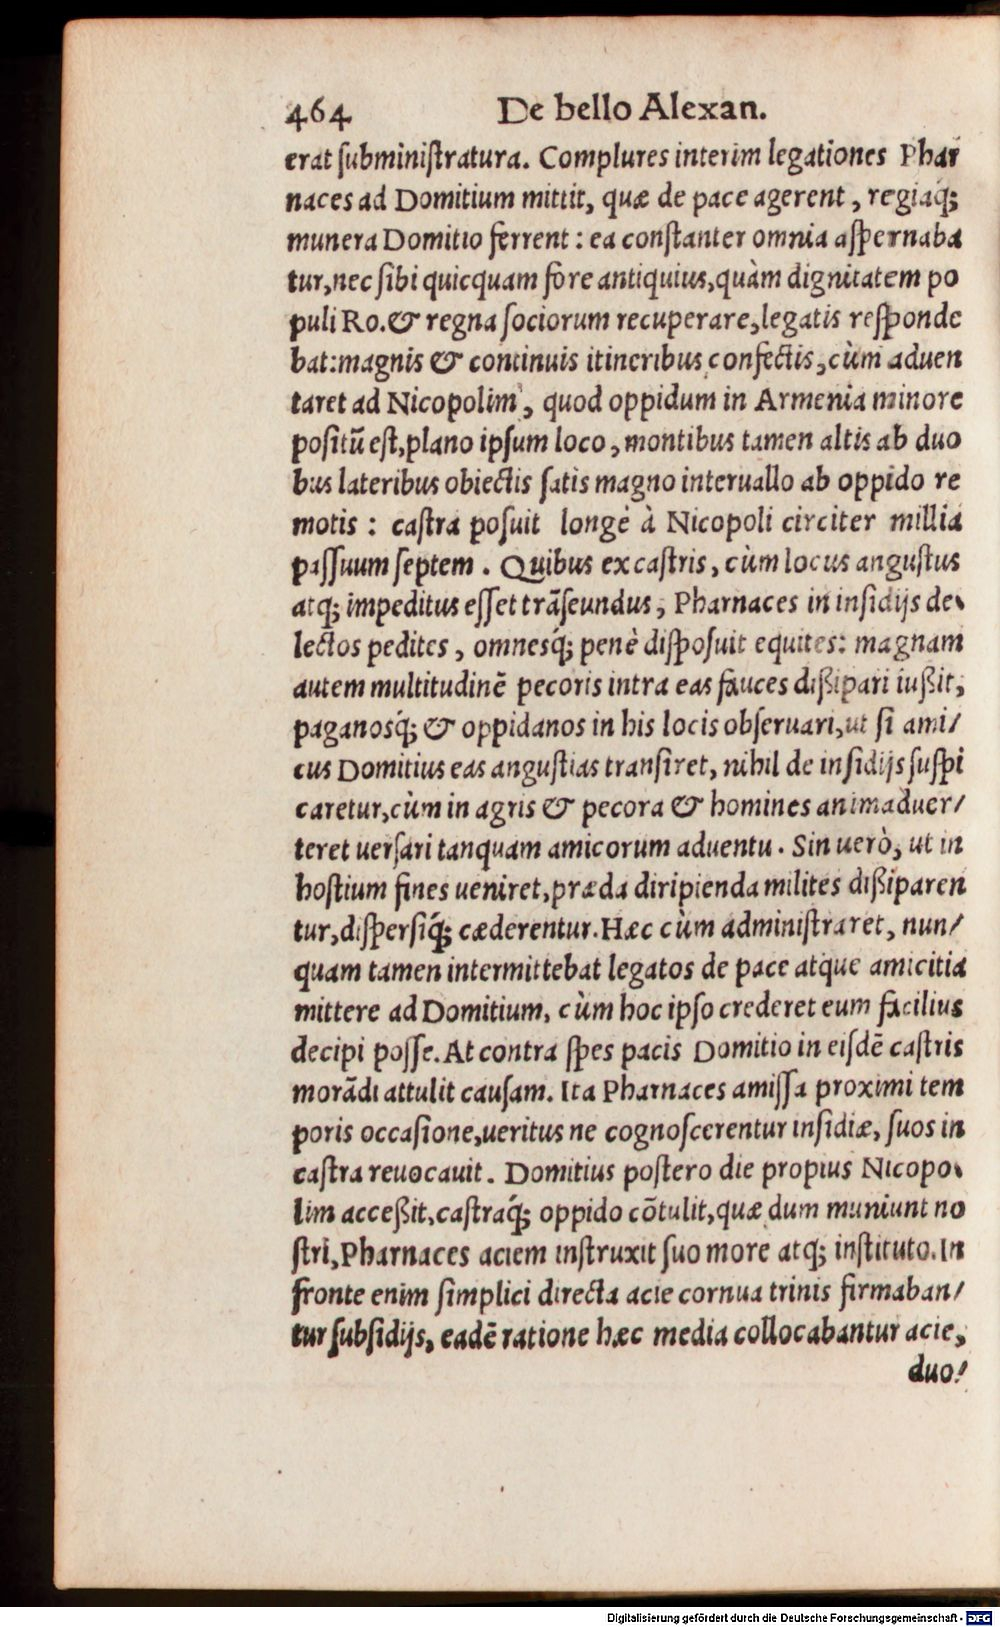 464 De bello Alexan.
erat ſubminiſtratura. Complures interim legationes Phar
naces ad Domitium mittit, quæ de pace agerent, regiaq́;
munera Domitio ferrent: ea conſtanter omnia aſpernaba
tur, nec ſibi quicquam fore antiquius, quàm dignitatem po
puli Ro. & regna ſociorum recuperare, legatis reſponde
bat: magnis & continuis itineribus confectis, cùm aduen
taret ad Nicopolim, quod oppidum in Armenia minore
poſitũ eſt, plano ipſum loco, montibus tamen altis ab duo
bus lateribus obiectis ſatis magno interuallo ab oppido re
motis: caſtra poſuit longè à Nicopoli circiter millia
paſſuum ſeptem. Quibus ex caſtris, cùm locus anguſtus
atq; impeditus eſſet trãſeundus, Pharnaces in inſidijs de-
lectos pedites, omnesq́; penè diſpoſuit equites: magnam
autem multitudinẽ pecoris intra eas fauces dißipari iußit,
paganosq́; & oppidanos in his locis obſeruari, ut ſi ami/
cus Domitius eas anguſtias tranſiret, nihil de inſidijs ſuſpi
caretur, cùm in agris & pecora & homines animaduer/
teret uerſari tanquam amicorum aduentu. Sin uerò, ut in
hoſtium fines ueniret, præda diripienda milites dißiparen
tur, diſperſiq́; cæderentur. Hæc cùm adminiſtraret, nun/
quam tamen intermittebat legatos de pace atque amicitia
mittere ad Domitium, cùm hoc ipſo crederet eum facilius
decipi poſſe. At contra ſpes pacis Domitio in eiſdẽ caſtris
morãdi attulit cauſam. Ita Pharnaces amiſſa proximi tem
poris occaſione, ueritus ne cognoſcerentur inſidiæ, ſuos in
caſtra reuocauit. Domitius poſtero die propius Nicopo-
lim acceßit, caſtraq́; oppido cõtulit, quæ dum muniunt no
ſtri, Pharnaces aciem inſtruxit ſuo more atq; inſtituto. In
fronte enim ſimplici directa acie cornua trinis firmaban/
tur ſubſidijs, eadẽ ratione hæc media collocabantur acie,
duo/
Digitalisierung gefördert durch die Deutsche Forschungsgemeinschaft - DFG